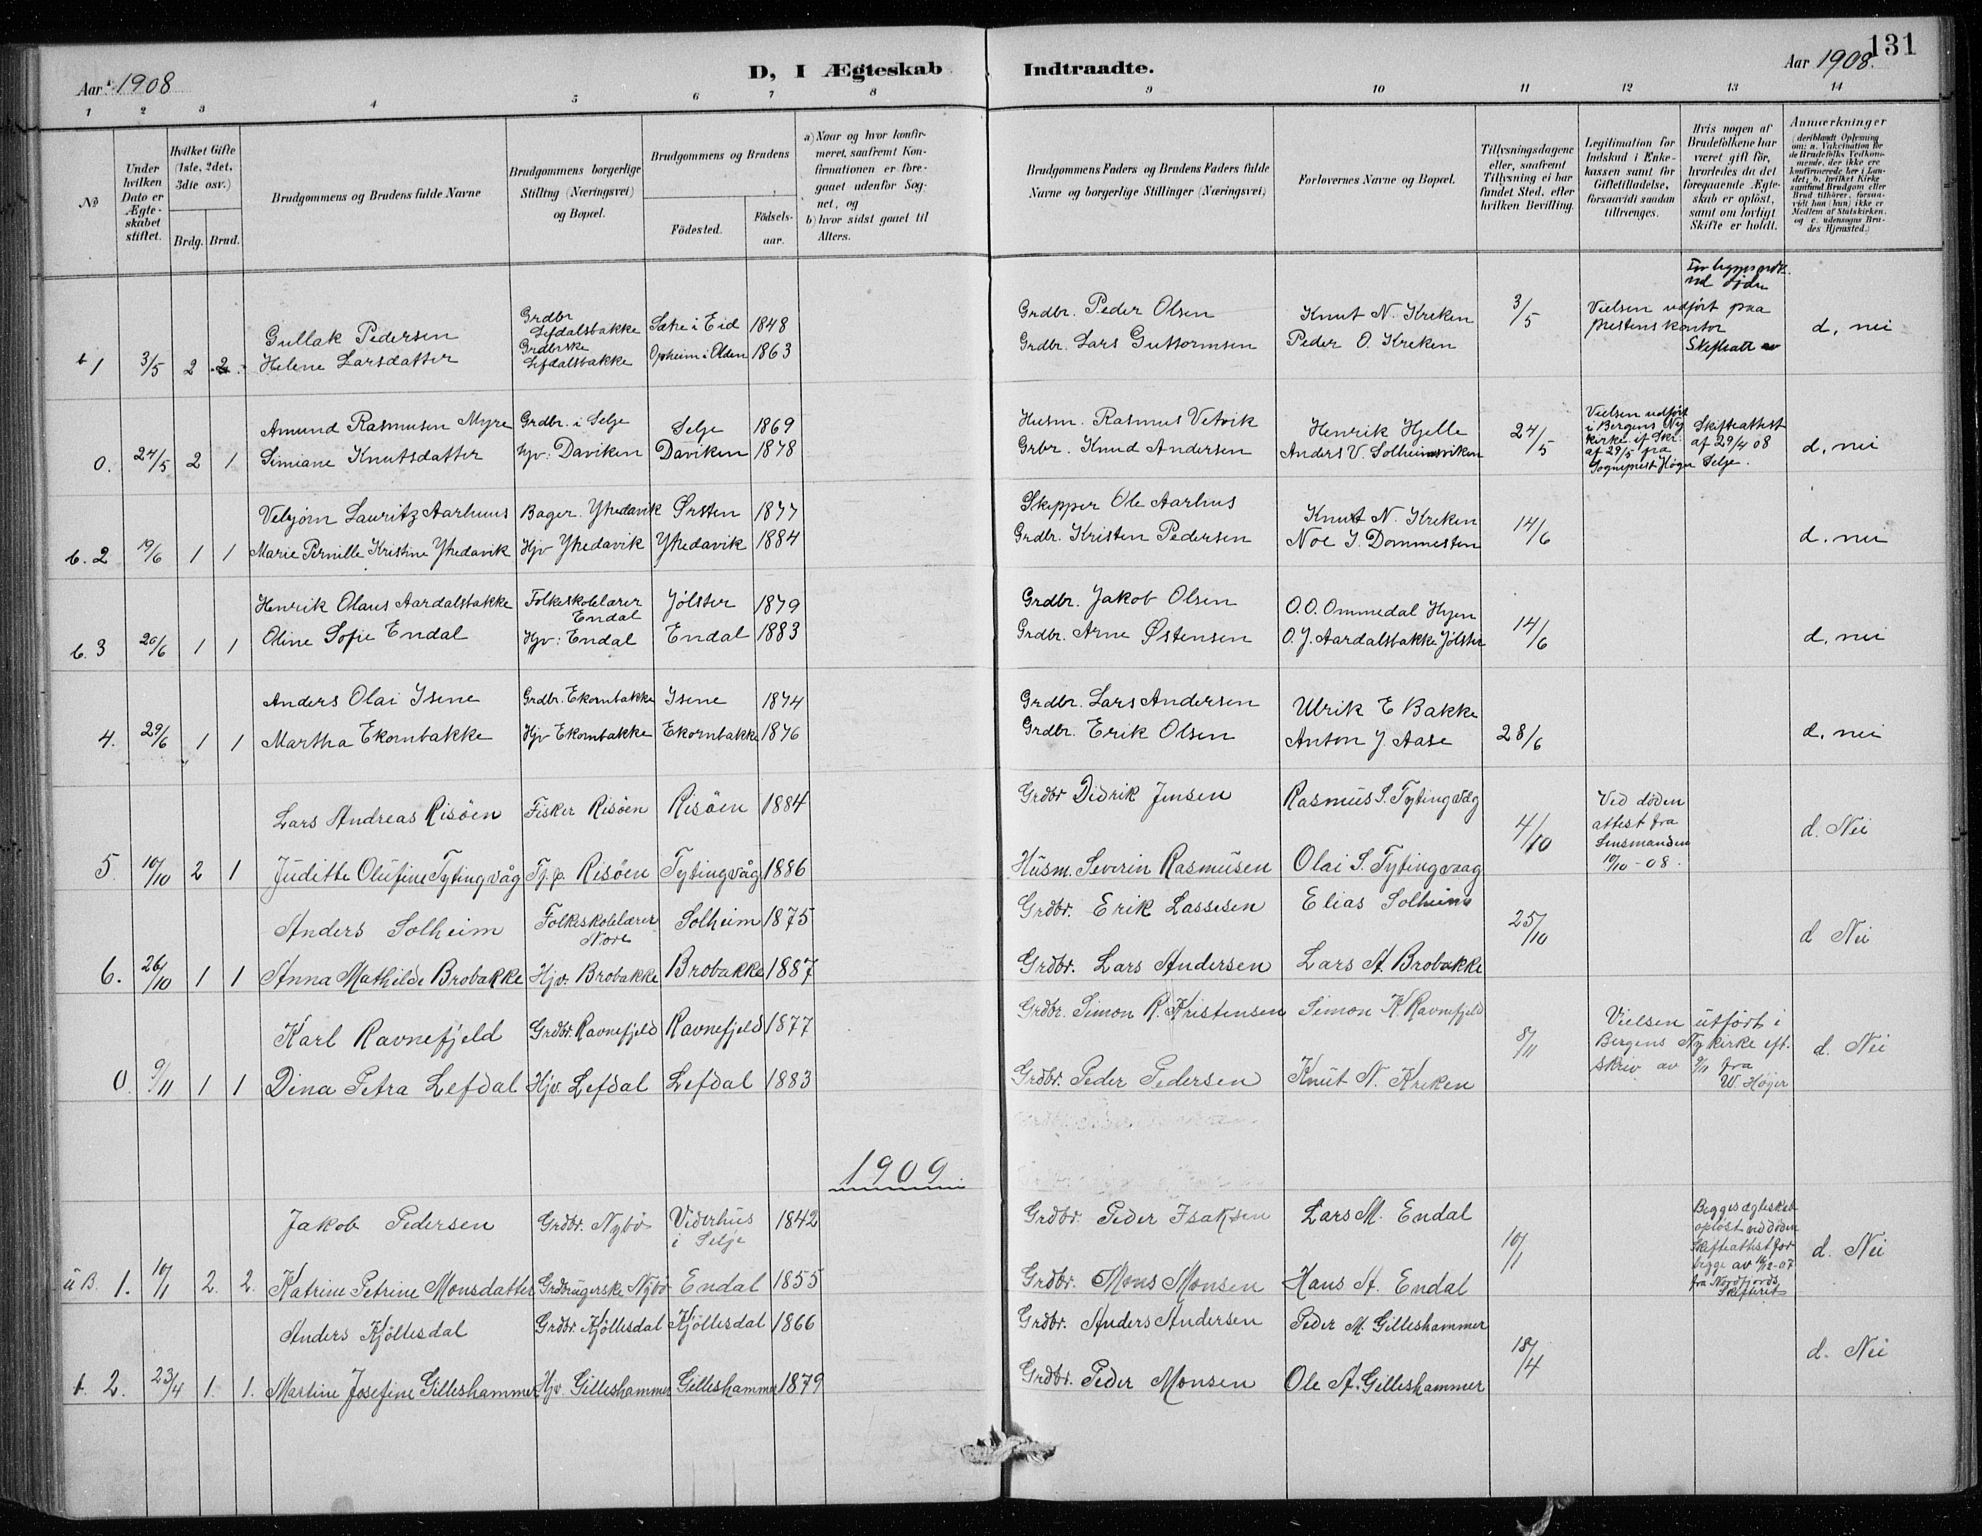 131
Aar 1908
D, I Ægteskab Indtraadte.
Aar 1908.
1 2 3 4 5 6 7 8 9 10 11 12 13 14
No
Under hvilken Dato er Ægteskabet stiftet.
Hvilket Gifte (1ste, 2det, 3die osv.)
Brdg. Brud.
Brudgommens og Brudens fulde Navne
Brudgommens borgerlige Stilling (Næringsvei) og Bopæl.
Brudgommens og Brudens
Födested. Födselsaar.
a) Naar og hvor konfirmeret, saafremt Konfirmationen er foregaaet udenfor Sognet, og
b) hvor sidst gaaet til Alters.
Brudgommens Faders og Brudens Faders fulde Navne og borgerlige Stillinger (Næringsvei)
Forlovernes Navne og Bopæl.
Tillysningsdagene eller, saafremt Tillysning ei har fundet Sted, efter hvilken Bevilling.
Legitimation for Indskud i Enkekassen samt for Giftetilladelse, forsaavidt saadan tiltrænges.
Hvis nogen af Brudefolkene har været gift för, hvorledes da det foregaaende Ægteskab er oplöst, samt om lovligt Skifte er holdt.
Anmærkninger (deriblandt Oplysning om: a. Vakcination for de Brudefolks Vedkommende, der ikke ere konfirmerede her i Landet; b. hvilket Kirkesamfund Brudgom eller Brud tilhörer, forsaavidt han (hun) ikke er Medlem af Statskirken, og c. udensogns Brudes Hjemsted.)
Gullak Pedersen Grdbr Lefdalsbakke Sætre i Eid 1848 Grdbr. Peder Olsen Knut N. Kreken 3/5 Vielsen udført paa prestens kontor Skifteatt av d. nei
1 3/5 2 2 Helene Larsdatter Grdbrske Lefdalsbakke Opheim i Olden 1863 Grdbr. Lars Guttormsen Peder O. Kreken
Amund Rasmusen Myre Grdbr. i Selje Selje 1869 Husm. Rasmus Vetvik Henrik Hjelle 24/5 Vielsen udført i Bergens Ny kirke ef. Skr. af 29/5 fra Sogneprest Høyer Skifteattest af 29/4 08 Selje. d. nei
0. 24/5 2 1 Simiane Knutsdatter Hjv: Daviken Daviken 1878 Grbr. Knud Andersen Anders V. Solheimsviken
Vebjørn Lauritz Aarhuus Bager. Ytredavik Ørsten 1877 Skipper Ole Aarhus Knut N. Kreken 14/6 d. nei
b. 2 19/6 1 1 Marie Pernille Kristine Ytredavik Hjv Ytredavik Ytredavik 1884 Grdbr. Kristen Pedersen Noe J. Dommesten
Henrik Olaus Aardalsbakke Folkeskolelærer Endal Jølster 1879 Grdbr. Jakob Olsen O. O. Ommedal Hyen 14/6 d. nei
b. 3 20/6 1 1 Oline Sofie Endal Hjv: Endal Endal 1883 Grdbr. Arne Østensen O. J. Aardalsbakke Jølster
Anders Olai Isene Grdbr. Ekornbakke Isene 1874 Grdbr. Lars Andersen Ulrik E Bakke 28/6 d. nei
4. 29/6 1 1 Martha Ekornbakke Hjv Ekornbakke Ekornbakke 1876 Grdbr. Erik Olsen Anton J. Aase
Lars Andreas Risöen Fisker Risöen Risöen 1884 Grdbr Didrik Jensen Rasmus S. Tytingvåg 4/10 Ved döden attest fra Lensmanden 10/10 - 08. d. Nei
5. 10/10 2 1 Juditte Olufine Tytingvåg Tj.p. Risöen Tytingvåg 1886 Husm. Severin Rasmusen Olai S. Tytingvaag
Anders Solheim Folkeskolelærer Nore Solheim 1875 Grdbr. Erik Lassesen Elias Solheim 25/10 d Nei
6. 26/10 1 1 Anna Mathilde Brobakke Hjv. Brobakke Brobakke 1887 Grdbr. Lars Andersen Lars A. Brobakke
Karl Ravnefjeld Grdbr. Ravnefjeld Ravnefjeld 1877 Grdbr. Simon R. Kristensen Simon K. Ravnefjeld 8/11 Vielsen utført i Bergens Nykirke eft. skriv av 9/11 fra W Høyer d. Nei
0. 9/11 1 1 Dina Petra Lefdal Hjv. Lefdal Lefdal 1883 Grdbr. Peder Pedersen Knut N. Kreken
1909.
Jakob Pedersen Grdbr. Nybö Viderhus i Selje 1842 Grdbr. Peder Isaksen Lars M. Endal 10/1 Begges ægteskab oplöst ved döden Skifteattest for begge av 11/2-07 fra Nordfjords Skifteret d. Nei
u B. 1. 10/1 2. 2. Katrine Petrine Monsdatter Grdbrugerske Nybö Endal 1855 Grdbr. Mons Monsen Hans A. Endal
Anders Kjöllesdal Grdbr. Kjöllesdal Kjöllesdal 1866 Grdbr. Anders Andersen Peder M. Gilleshammer 18/4 d. Nei
b. 2. 23/4 1. 1. Martine Josefine Gilleshammer Hjv. Gilleshammer Gilleshammer 1879 Grdbr. Peder Monsen Ole A. Gilleshammer